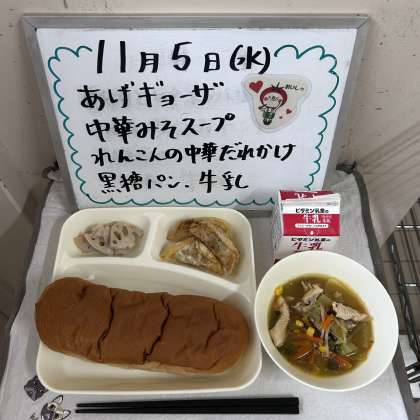 11月5日(水)
おいしっ
あげギョーザ
中華みそスープ
れんこんの中華だれかけ
黒糖パン、牛乳
ビタミン乳業の
牛乳
ビタミン乳業の
牛乳